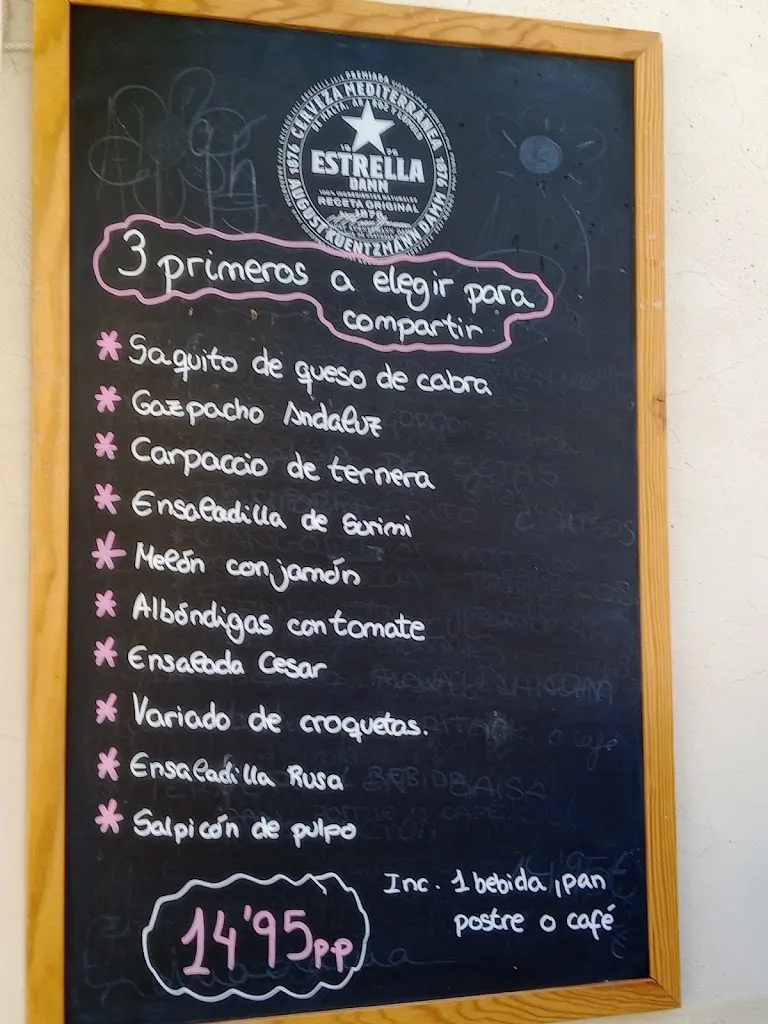 PREMIADA
CERVEZA MEDITERRÁNEA
DE MALTA, ARROZ Y LÚPULO
1876
1876
ESTRELLA
DAMM
100% INGREDIENTES NATURALES
RECETA ORIGINAL
1876
AUGUST KUENTZMANN DAMM
3 primeros a elegir para
compartir
* Saquito de queso de cabra
* Gazpacho Andaluz
* Carpaccio de ternera
* Ensaladilla de Surimi
* Melón con jamón
* Albóndigas con tomate
* Ensalada Cesar
* Variado de croquetas.
* Ensaladilla Rusa
* Salpicón de pulpo
Inc. 1 bebida, pan
postre o café
14'95pp